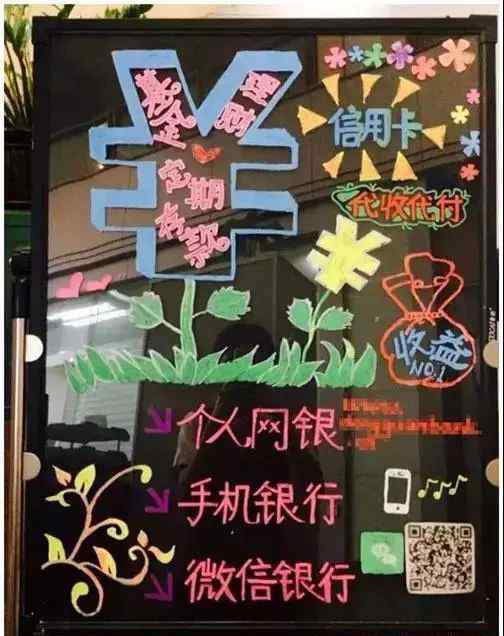 基金
理财
定期
存款
信用卡
代收代付
收益
NO.1
个人网银
手机银行
微信银行